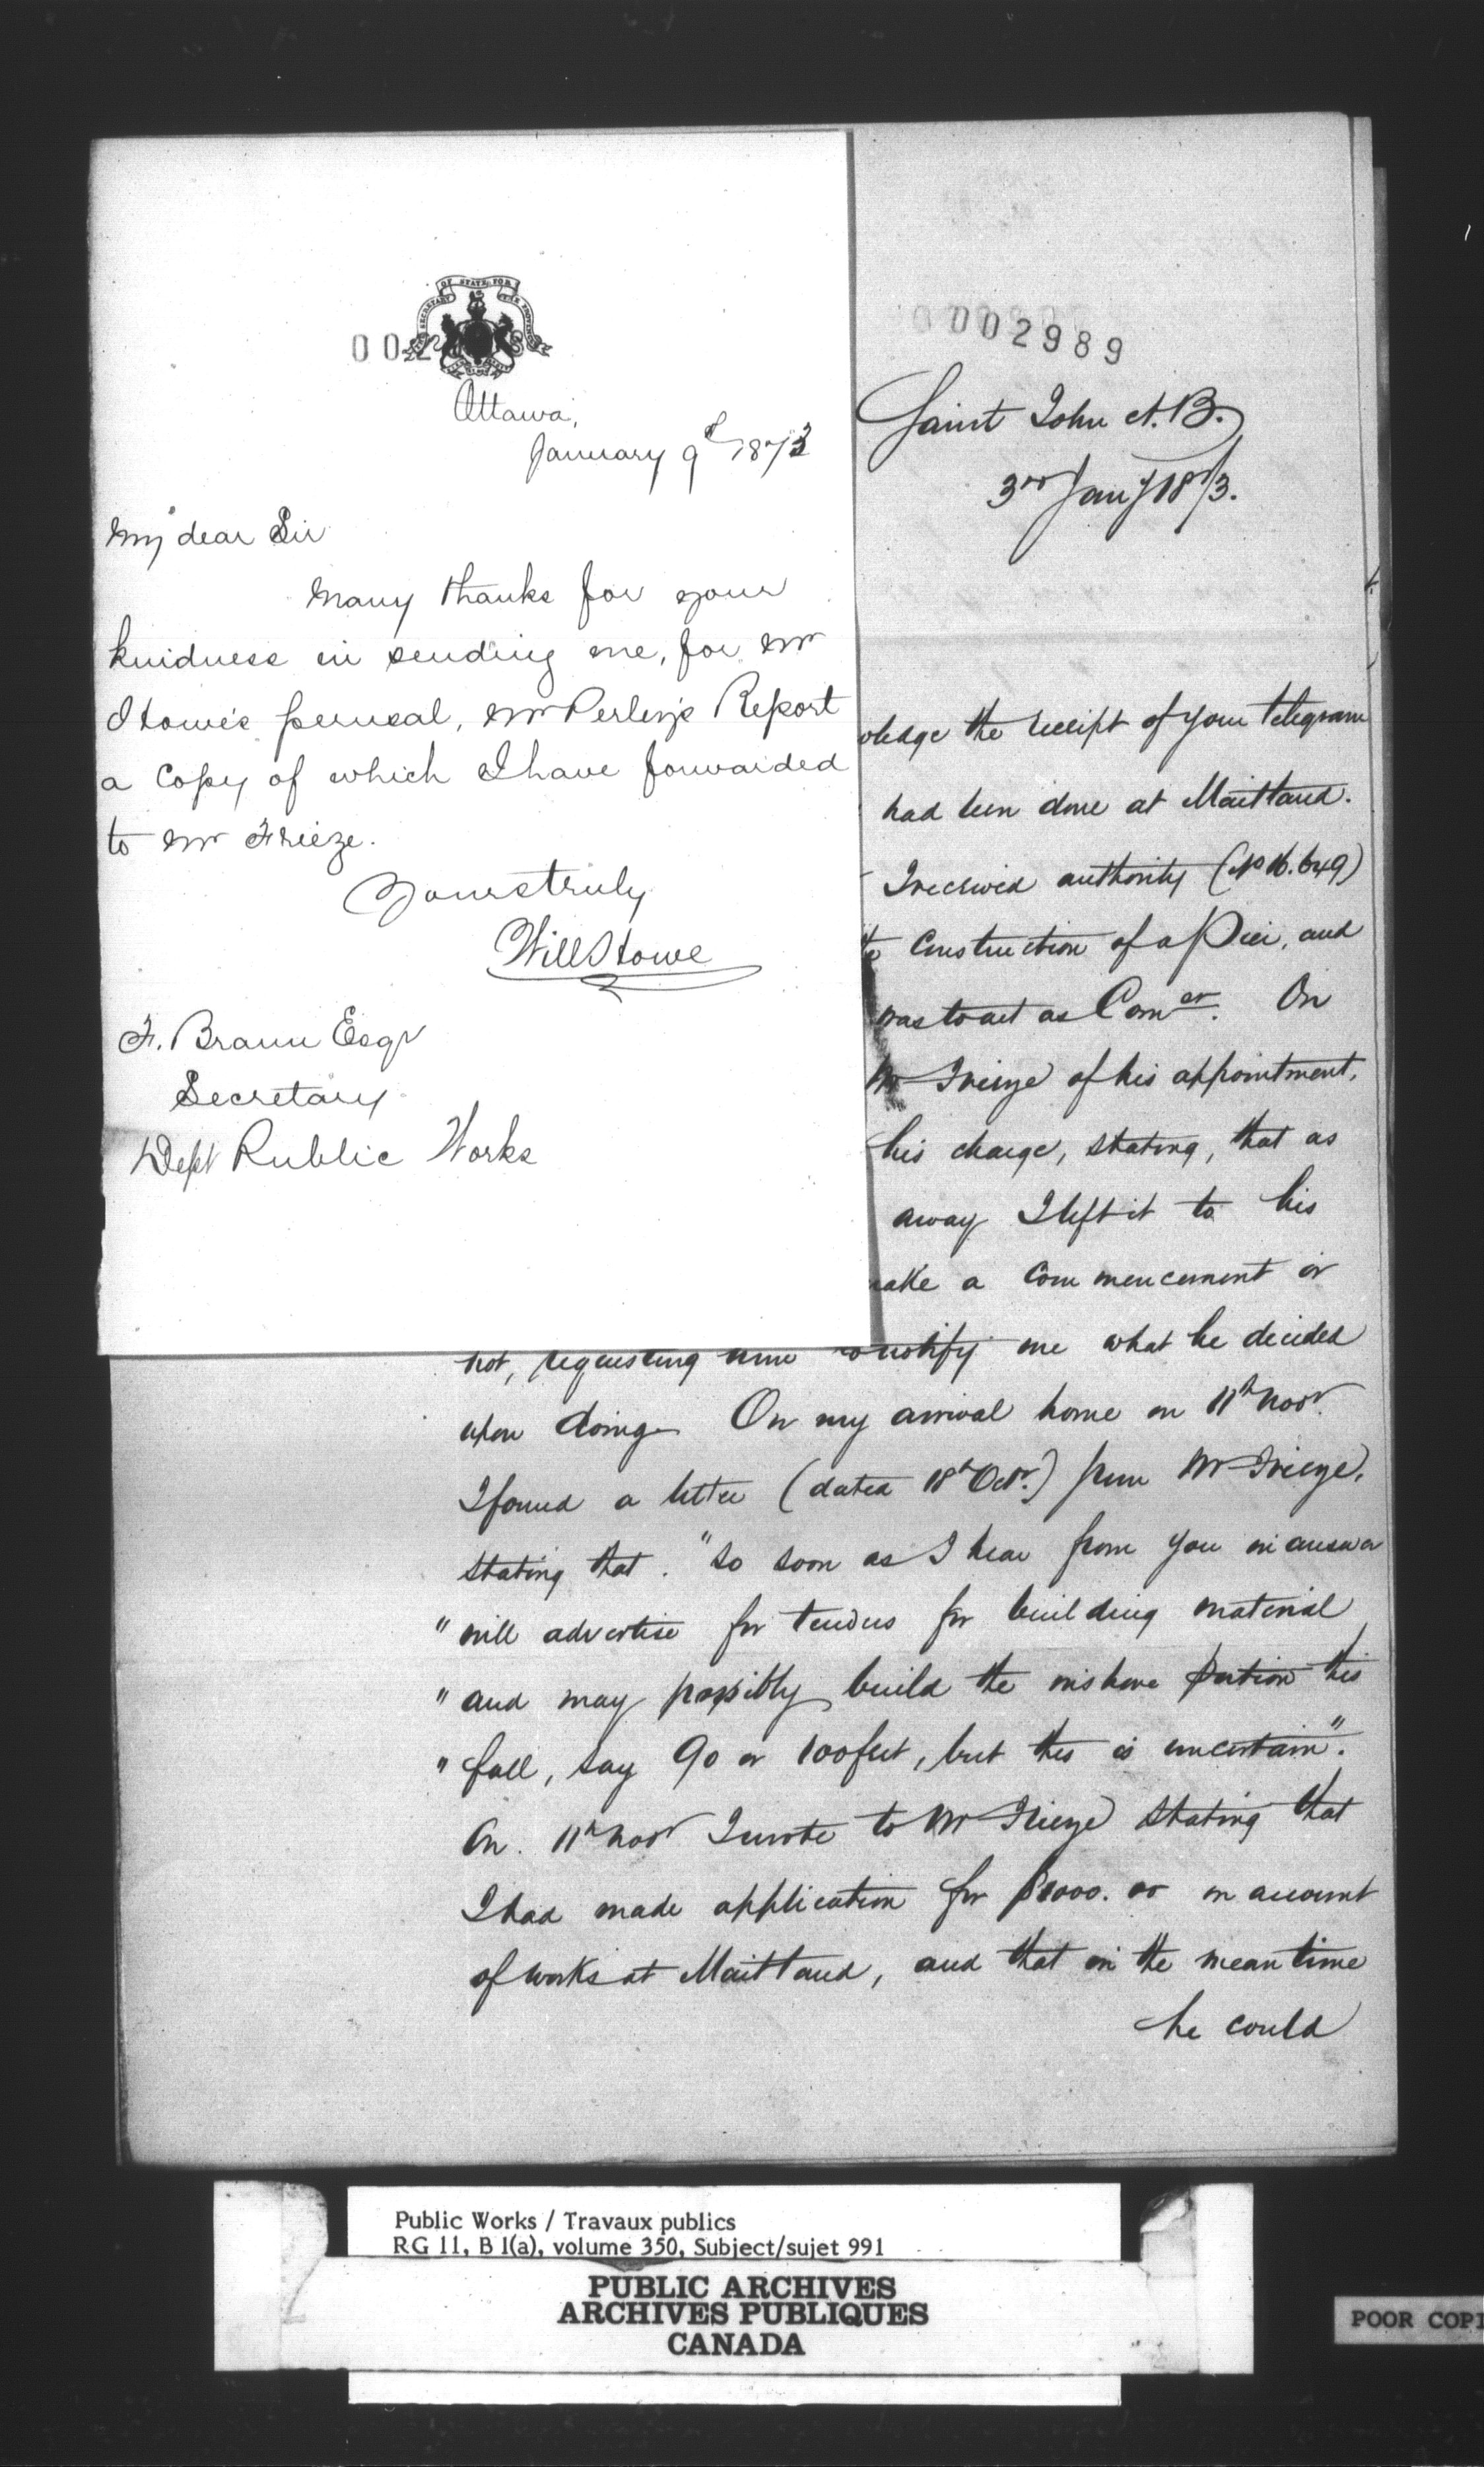 OF STATE FOR
SECRETARY
THE PROVINCES
Ottawa,
January 9th 1873
My dear Sir
Many thanks for your
kindness in sending me, for Mr
Howe's perusal, Mr Perley's Report
a Copy of which I have forwarded
to Mr Frieze.
Yours truly
Will Howe
F. Braun Esqr
Secretary
Dept Public Works
0002989
Saint John N.B.
3rd Jany 1873.
owledge the receipt of your telegram
had been done at Maitland.
I received authority (No 16.649)
the Construction of a Pier, and
was to act as Comer. On
Mr Frieze of his appointment,
his charge, stating, that as
away I left it to his
make a Commencement or
not, requesting him to notify me what he decided
upon doing. On my arrival home on 11th Novr
I found a letter (dated 18th Octr.) from Mr Frieze,
stating that. "so soon as I hear from you in answer
"will advertise for tenders for building material
"and may possibly build the inshore portion this
"fall, say 90 or 100 feet, but this is uncertain".
On. 11th Novr I wrote to Mr Frieze stating that
I had made application for $1000.00 on account
of works at Maitland, and that in the mean time
he could
Public Works / Travaux publics
RG 11, B 1(a), volume 350, Subject/sujet 991
PUBLIC ARCHIVES
ARCHIVES PUBLIQUES
CANADA
POOR COPI